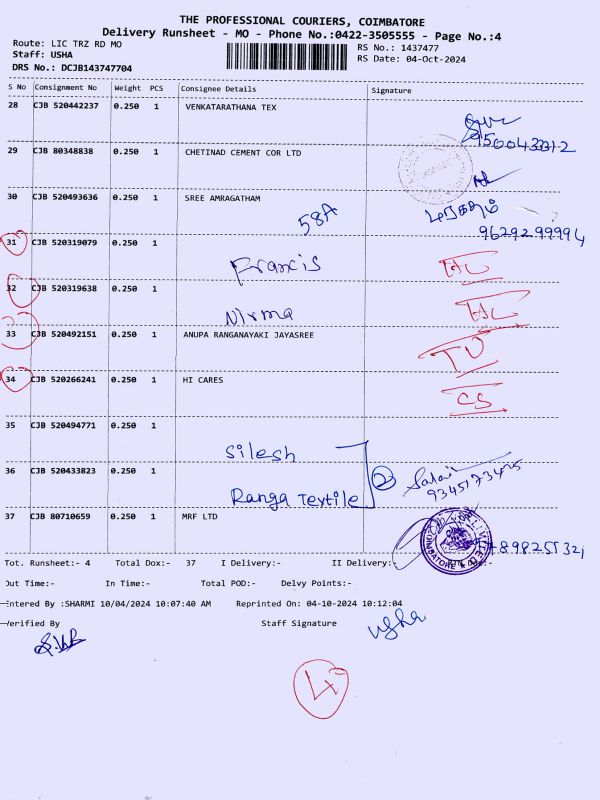 THE PROFESSIONAL COURIERS, COIMBATORE
Delivery Runsheet - MO - Phone No.:0422-3505555 - Page No.:4
Route: LIC TRZ RD MO RS No.: 1437477
Staff: USHA RS Date: 04-Oct-2024
DRS No.: DCJB143747704
S No Consignment No Weight PCS Consignee Details Signature
28 CJB 520442237 0.250 1 VENKATARATHANA TEX
29 CJB 80348838 0.250 1 CHETINAD CEMENT COR LTD
30 CJB 520493636 0.250 1 SREE AMRAGATHAM
58A
96292 99994
31 CJB 520319079 0.250 1 Francis
32 CJB 520319638 0.250 1 Nirma
33 CJB 520492151 0.250 1 ANUPA RANGANAYAKI JAYASREE TD
34 CJB 520266241 0.250 1 HI CARES CS
35 CJB 520494771 0.250 1 Silesh
36 CJB 520433823 0.250 1 Ranga Textile 2
37 CJB 80710659 0.250 1 MRF LTD
Tot. Runsheet:- 4 Total Dox:- 37 I Delivery:- II Delivery:-
Out Time:- In Time:- Total POD:- Delvy Points:-
Entered By :SHARMI 10/04/2024 10:07:40 AM Reprinted On: 04-10-2024 10:12:04
Verified By Staff Signature
usha
4